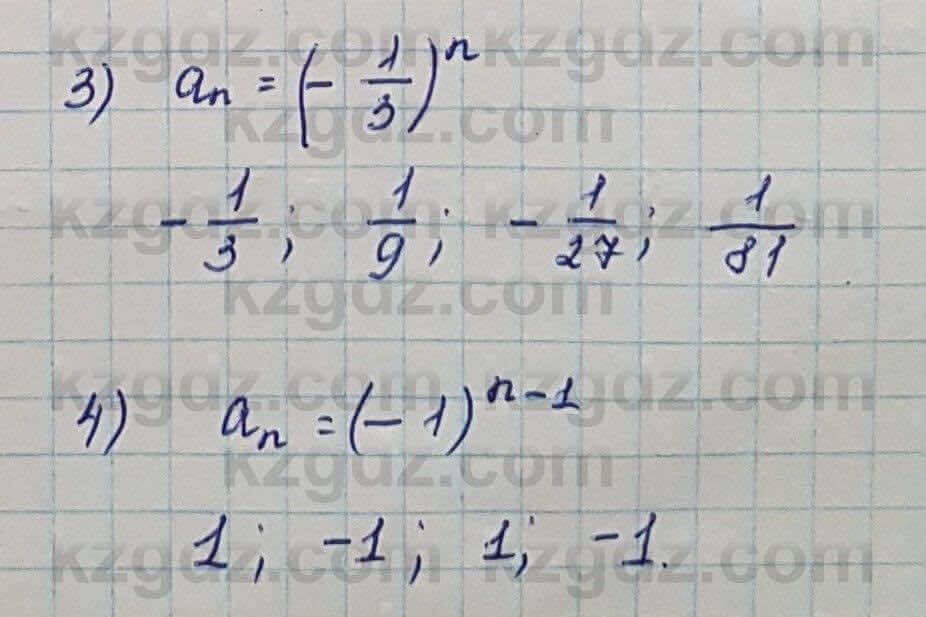 kzgdz.com kzgdz.com
3) aₙ = (- 1/3)ⁿ
kzgdz.com
kzgdz.com kzgdz.com
- 1/3; 1/9; - 1/27; 1/81
kzgdz.com
kzgdz.com kzgdz.com
4) aₙ = (- 1)ⁿ⁻¹
kzgdz.com
kzgdz.com kzgdz.com
1; -1; 1; -1.